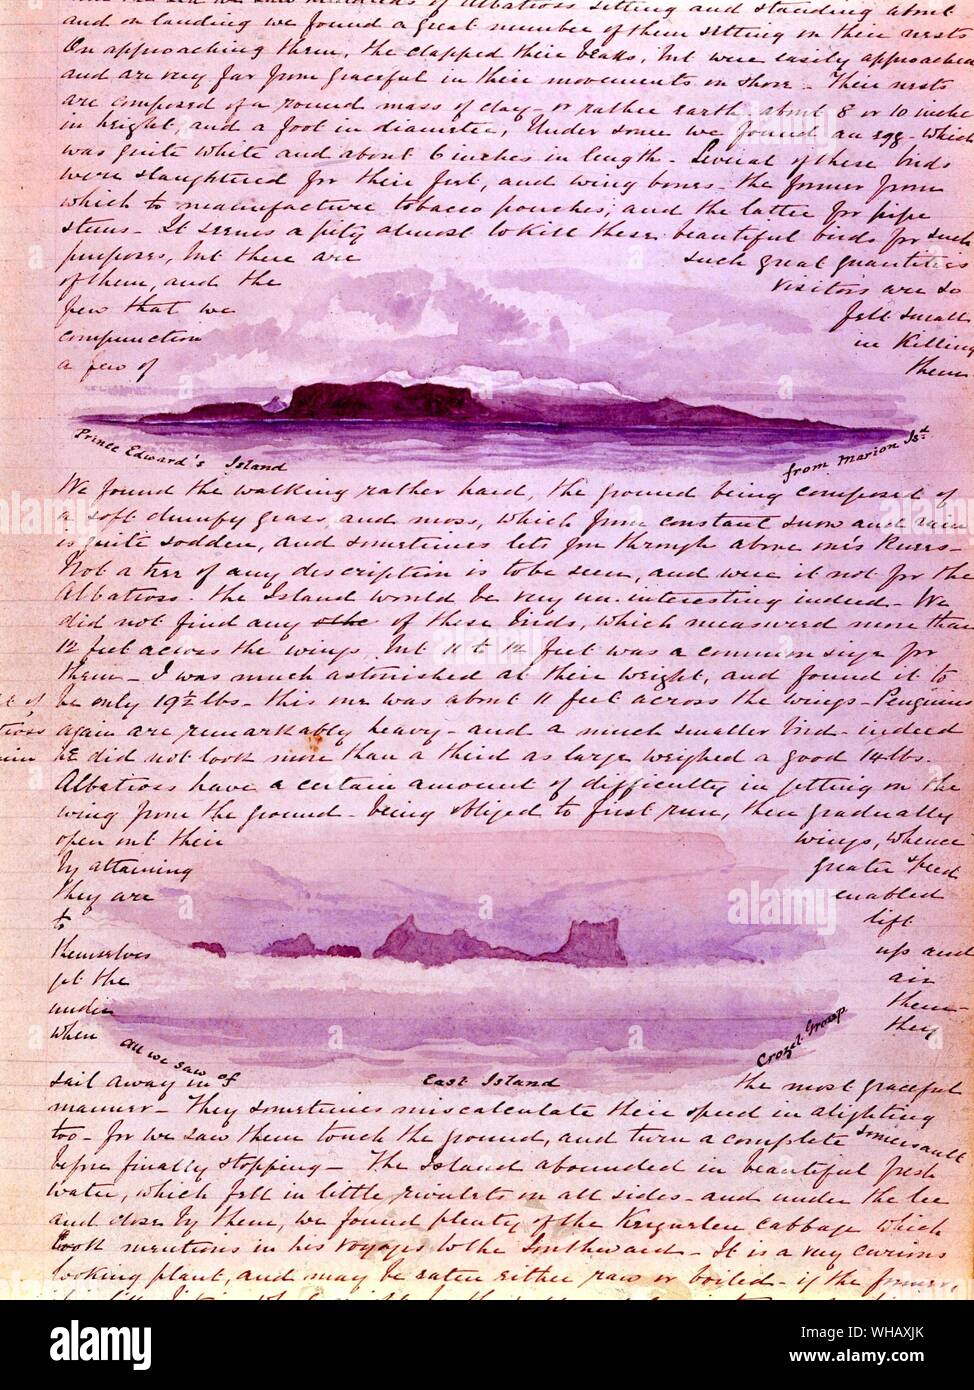 and on landing we found a great number of them sitting on their nests
On approaching them, the clapped their beaks, but were easily approached
and are very far from graceful in their movements on shore - Their nests
are composed of a round mass of clay - or rather earth about 8 or 10 inches
in height and a foot in diameter, Under some we found an egg - which
was quite white and about 6 inches in length - Several of these birds
were slaughtered for their feet, and wing bones - the former from
which to manufacture tobacco pouches; and the latter for pipe
stems - It seems a pity almost to kill these beautiful birds for such
purposes, but there are such great quantities
of them, and the visitors are so
few that we felt small
compunction in killing
a few of them
Prince Edward's Island from Marion Isd.
We found the walking rather hard, the ground being composed of
a soft clumpy grass and moss, which from constant snow and rain
is quite sodden, and sometimes lets you through above one's knees -
Not a tree of any description is to be seen, and were it not for the
Albatross - the Island would be very un-interesting indeed - We
did not find any of these birds, which measured more than
12 feet across the wings, but 11 to 12 feet was a common size for
them - I was much astonished at their weight, and found it to
be only 19½ lbs - this one was about 11 feet across the wings - Penguins
again are remarkably heavy - and a much smaller bird - indeed
he did not look more than a third as large weighed a good 14 lbs.
Albatross have a certain amount of difficulty in getting on the
wing from the ground - being obliged to first run, then gradually
open out their wings, whence
by attaining greater speed
they are enabled
to lift
themselves up and
get the air
under them -
when they
All we saw of East Island Crozet Group
sail away in the most graceful
manner - They sometimes miscalculate their speed in alighting
too - for we saw them touch the ground, and turn a complete somersault
before finally stopping - The Island abounded in beautiful fresh
water, which fell in little rivulets on all sides - and under the lee
and close by them, we found plenty of the Kerguelen cabbage which
Cook mentions in his voyages to the Southward - It is a very curious
looking plant, and may be eaten either raw or boiled - if the former,
alamy
Image ID: WHAXJK
www.alamy.com